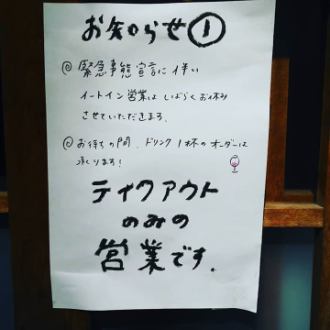 お知らせ①
◎ 緊急事態宣言に伴い
イートイン営業は しばらくお休み
させていただきます.
◎ お待ちの間、ドリンク1杯のオーダーは
承ります!
テイクアウト
のみの
営業です.